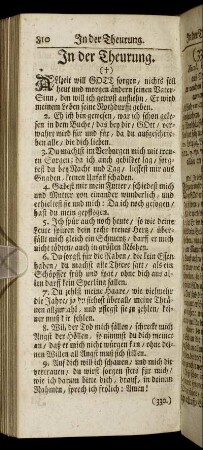 810 In der Theurung.
In der Theurung.
(†)
Allzeit will GOTT sorgen, nichts soll
heut und morgen ändern seinen Vater-
Sinn, den will ich getrost anflehn, Er wird
meinem Leben seine Nothdurft geben.
2. Eh ich bin gewesen, war ich schon gele-
sen in dem Buche, das bey dir, GOtt, ver-
wahrt wird für und für, da du aufgeschrie-
ben alle, die dich lieben.
3. Du machst im Verborgen mich mit treu-
en Sorgen: da ich auch gebildet lag, sorg-
test du bey Nacht und Tag, liessest mir aus
Gnaden, keinen Unfall schaden.
4. Gabest mir mein Futter, schiedest mich
und Mutter von einander wunderlich, und
erhieltest sie und mich: Da ich noch gesogen, hast
du mein gepflogen.
5. Ich spür auch noch heute, so wie deine
Leute spüren dein recht treues Hertz, über-
fällt mich gleich ein Schmertz, darf er mich
nicht tödten, auch in grösten Nöthen.
6. Du sorgst für die Raben, die kein Essen
haben, du machst alle Thiere satt, als ein
Schöpfer früh und spat, ohne dich auf al-
len darf kein Sperling fallen.
7. Du zehlst meine Haare, wie vielmehr
die Jahre, ja du siehest überall meine Thrä-
nen allzumahl, und pflegst sie zu zehlen, kei-
ner muß dir fehlen.
8. Will der Tod mich fällen, schreckt mich
Angst der Höllen, so nimmst du dich meiner
an, daß er mich nicht würgen kan, ohne dei-
nen Willen all Angst muß sich stillen.
9. Auf dich will ich schauen, und mich dir
vertrauen, du wirst sorgen stets für mich,
wie ich darum bitte dich, drauf, in deinem
Nahmen, sprech ich frölich: Amen!
(330.)